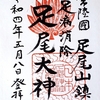 陸國 足尾山鎮
消除
足尾大神
令和四年五月八日登拝